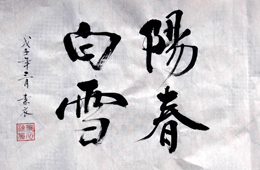 陽春
白雪
戊子年三月